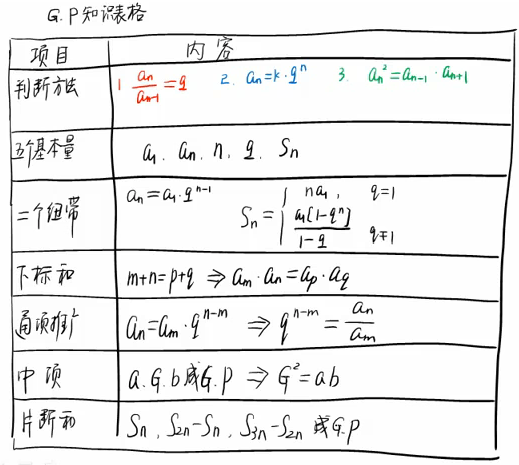 G.P知识表格
项目 内容
判断方法 1 aₙ/aₙ₋₁=q 2. aₙ=k·qⁿ 3. aₙ²=aₙ₋₁·aₙ₊₁
五个基本量 a₁. aₙ. n. q. Sₙ
二个纽带 aₙ=a₁·qⁿ⁻¹ Sₙ={ na₁, q=1
a₁[1-qⁿ]/1-q q≠1
下标和 m+n=p+q ⇒ aₘ·aₙ=aₚ·a_q
通项推广 aₙ=aₘ·qⁿ⁻ᵐ ⇒ qⁿ⁻ᵐ=aₙ/aₘ
中项 a.G.b成G.P ⇒ G²=ab
片断和 Sₙ, S₂ₙ-Sₙ, S₃ₙ-S₂ₙ 成G.P